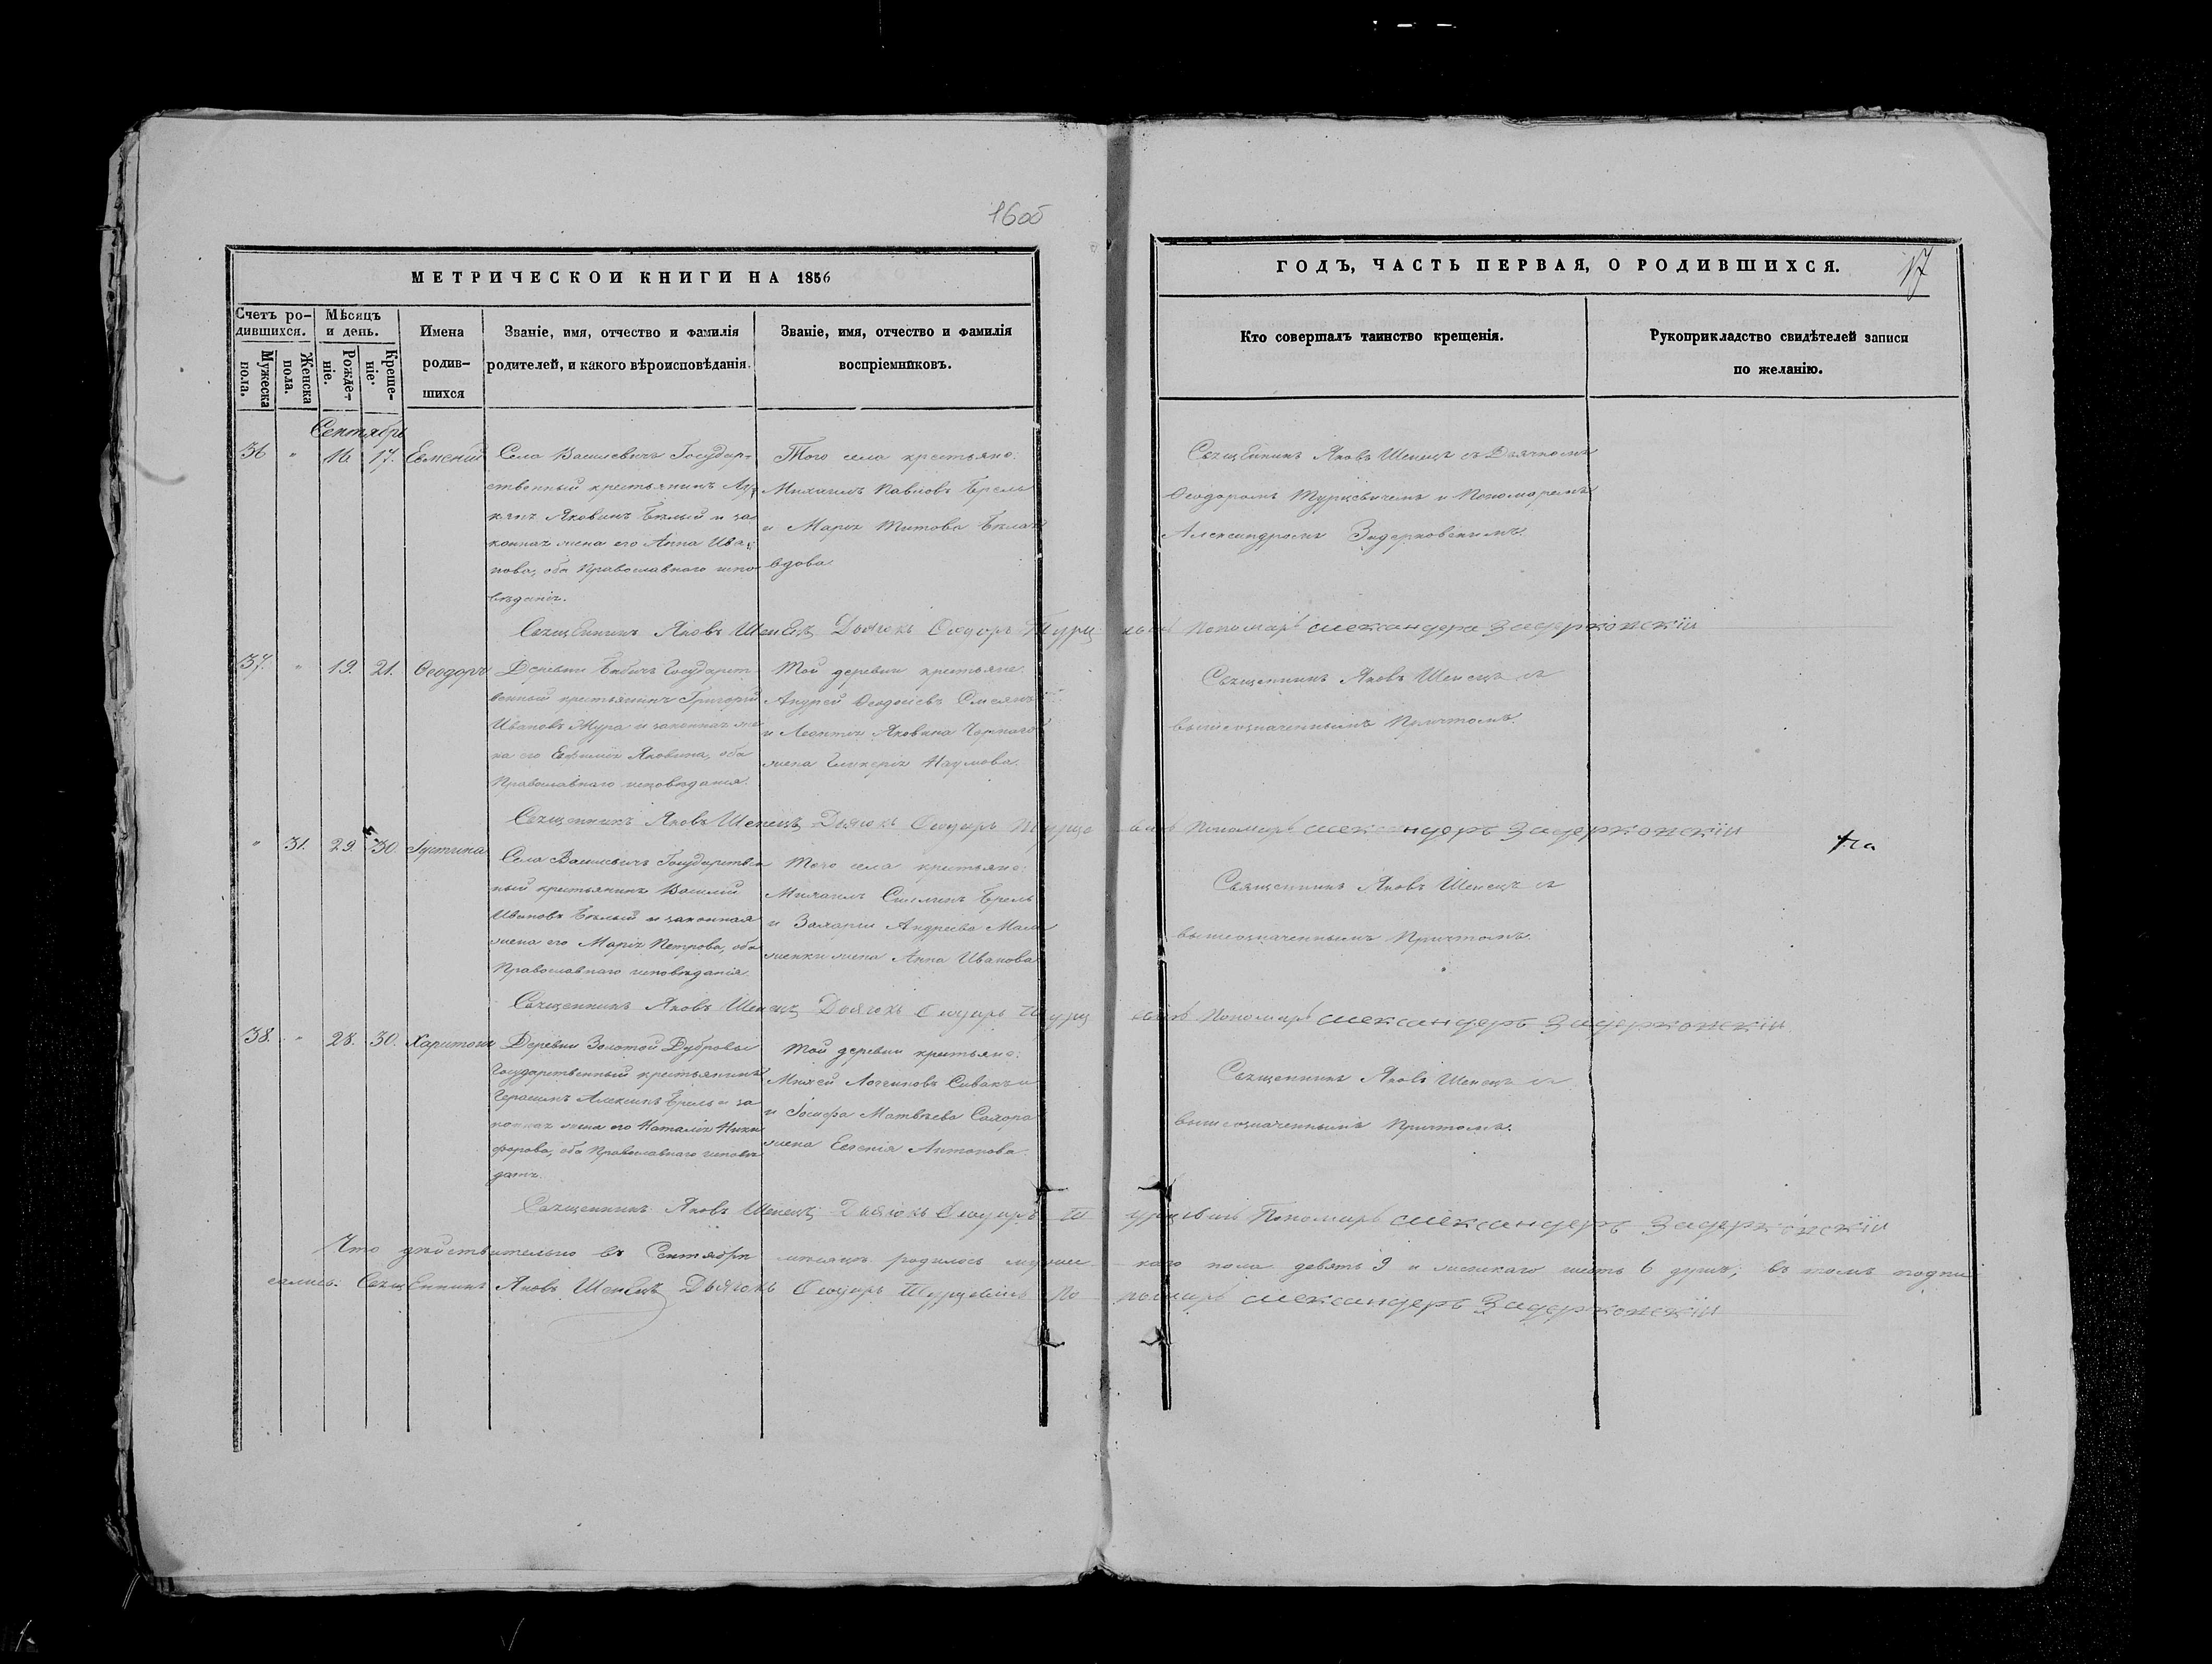 16об
МЕТРИЧЕСКОЙ КНИГИ НА 1856
ГОДЪ, ЧАСТЬ ПЕРВАЯ, О РОДИВШИХСЯ.
17
Счетъ ро-
дившихся.
Мужеска
пола.
Женска
пола.
Мѣсяцъ
и день.
Рожде-
ніе.
Креще-
ніе.
Имена
родив-
шихся
Званіе, имя, отчество и фамилія
родителей, и какого вѣроисповѣданія.
Званіе, имя, отчество и фамилія
воспріемниковъ.
Кто совершалъ таинство крещенія.
Рукоприкладство свидѣтелей записи
по желанію.
Сентябрь
36 " 16 17.
Села Василевичъ Государ-
ственный крестьянинъ
Яковинъ Бѣлый и за
конная жена его Анна Ива
нова, оба Православнаго испо
вѣданія.
Того села крестьяне:
Михаилъ Павловъ Брель
и Марія Титова Бѣлая
вдова.
Священникъ Яковъ Шепецъ съ Дьячкомъ
Ѳеодоромъ Турцевичемъ и Пономаремъ
Александромъ Задерковскимъ.
Священникъ Яковъ Шепецъ Дьячокъ Ѳеодоръ Турцевичъ Пономарь Александеръ Задерковскій
37. " 19. 21. Ѳеодоръ
Деревни Бабичъ Государст
венный крестьянинъ Григорій
Ивановъ Жура и законная же
на его Евѳимія Яковина, оба
Православнаго исповѣданія.
Той деревни крестьяне:
Андрей
и Леонтія Яковина Чернаго
жена Гликерія Наумова.
Священникъ Яковъ Шепецъ съ
вышеозначеннымъ Причтомъ.
Священникъ Яковъ Шепецъ Дьячокъ Ѳеодоръ Турцевичъ Пономарь Александеръ Задерковскій
" 31. 29. 30. Іустина
Села Василевичъ Государствен
ный крестьянинъ Василій
Ивановъ Бѣлый и законная
жена его Марія Петрова, оба
Православнаго исповѣданія.
Того села крестьяне:
Михаилъ Брель
и Захаріи Андреева
жена Анна Иванова
Священникъ Яковъ Шепецъ съ
вышеозначеннымъ Причтомъ.
Священникъ Яковъ Шепецъ Дьячокъ Ѳеодоръ Турцевичъ Пономарь Александеръ Задерковскій
38. " 28. 30. Харитонъ
Деревни Золотой Дубровы
Государственный крестьянинъ
Герасимъ Алексинъ Брель и за
конная жена его Наталія Ники
форова, оба Православнаго исповѣ
данія.
Той деревни крестьяне:
Логвиновъ
и Іосифа Матвѣева
жена Евгенія Антонова.
Священникъ Яковъ Шепецъ съ
вышеозначеннымъ Причтомъ.
Священникъ Яковъ Шепецъ Дьячокъ Ѳеодоръ Турцевичъ Пономарь Александеръ Задерковскій
Что дѣйствительно въ Сентябрѣ мѣсяцѣ родилось мужес- каго пола девять 9 и женскаго шесть 6 душъ; въ томъ подпи
сались: Священникъ Яковъ Шепецъ Дьячокъ Ѳеодоръ Турцевичъ По- номарь Александеръ Задерковскій